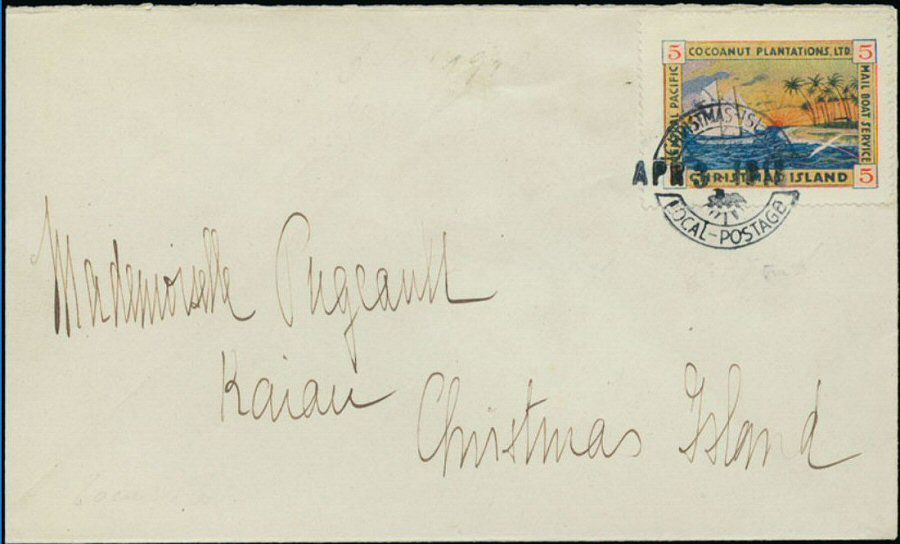 5 COCOANUT PLANTATIONS, LTD. 5
CENTRAL PACIFIC
MAIL BOAT SERVICE
CHRISTMAS ISLAND 5
CHRISTMAS ISLAND
APR
LOCAL-POSTAGE
Mademoiselle Pugeault
Kaiau
Christmas Island